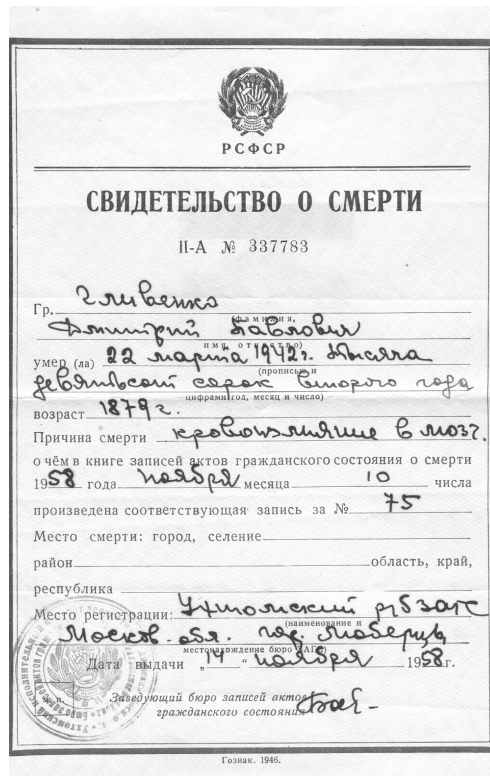 РСФСР
СВИДЕТЕЛЬСТВО О СМЕРТИ
II-А № 337783
Гр. Гливенко
(фамилия,
Дмитрий Павлович
имя, отчество)
умер (ла) 22 марта 1942 г. Тысяча
(прописью и
девятьсот сорок второго года
цифрами год, месяц и число)
возраст 1879 г.
Причина смерти кровоизлияние в мозг.
о чём в книге записей актов гражданского состояния о смерти
1958 года ноября месяца 10 числа
произведена соответствующая запись за № 75
Место смерти: город, селение
район область, край,
республика
Место регистрации: Ухтомский р/б загс
(наименование и
Москов. обл. гор. Люберцы
местонахождение бюро ЗАГС)
Дата выдачи "14" ноября 1958 г.
Заведующий бюро записей актов
гражданского состояния
Гознак. 1946.